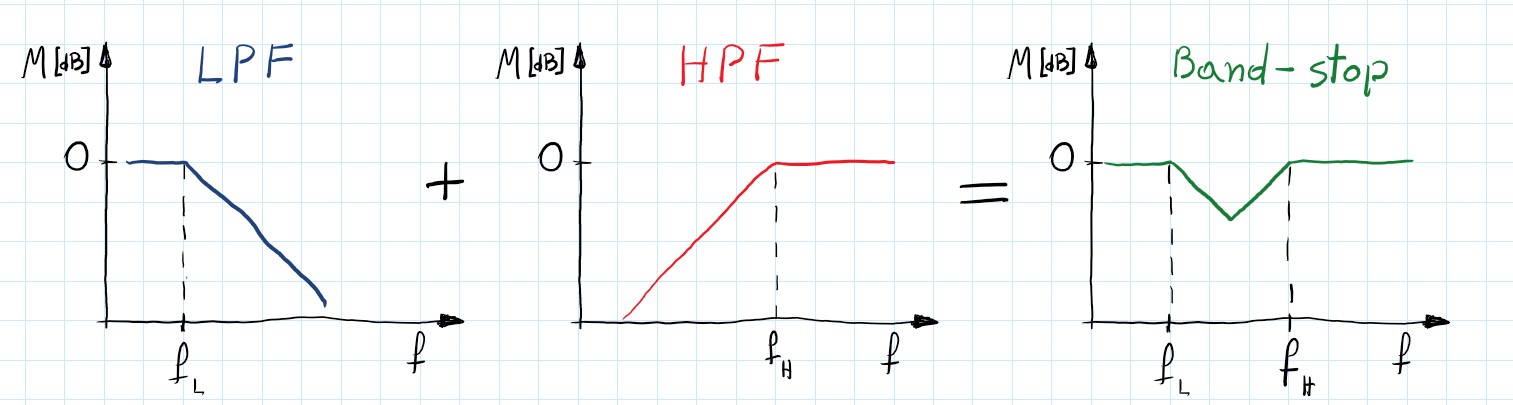 M [dB] LPF
0
f_L f
+
M [dB] HPF
0
f_H f
=
M [dB] Band-stop
0
f_L f_H f